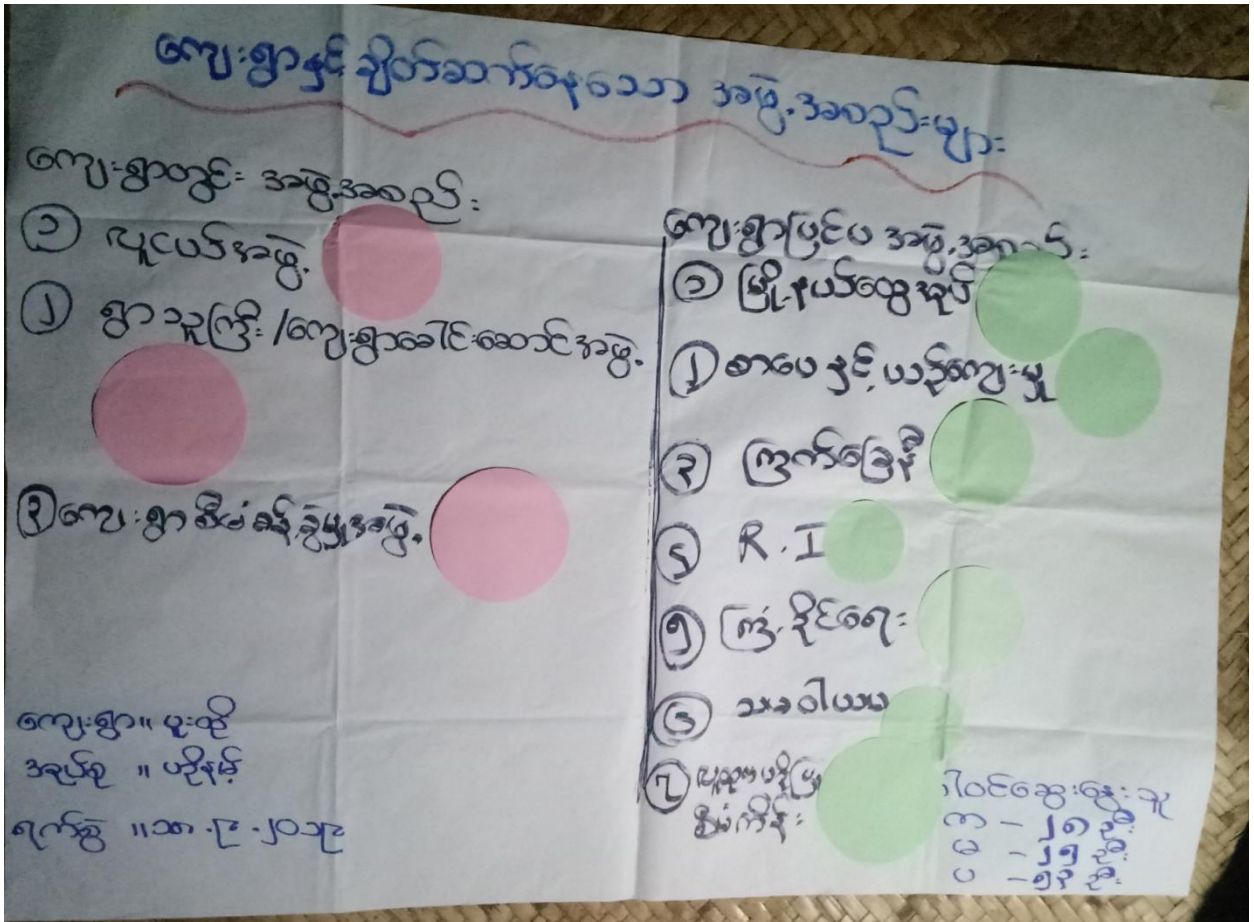 ကျေးရွာနှင့် ချိတ်ဆက်နေသော အဖွဲ့အစည်းများ
ကျေးရွာတွင်း အဖွဲ့အစည်း
၁ လူငယ်အဖွဲ့
၂ ရွာသူကြီး/ကျေးရွာခေါင်းဆောင်အဖွဲ့
၃ ကျေးရွာစီမံခန့်ခွဲမှုအဖွဲ့
ကျေးရွာ။ ပူးထို
အုပ်စု ။ ဟိုနမ့်
ရက်စွဲ ။ ၁၈.၉.၂၀၁၉
ကျေးရွာပြင်ပ အဖွဲ့အစည်း
၁ မြို့နယ်ထွေအုပ်
၂ စာပေနှင့် ယဉ်ကျေးမှု
၃ ကြက်ခြေနီ
၄ R.I
၅ ကြံ့ခိုင်ရေး
၆ သမဝါယမ
၇ လူထုဗဟိုပြု
စီမံကိန်း
ပါဝင်ဆွေးနွေးသူ
ကျ - ၂၈ ဦး
မ - ၂၅ ဦး
ပ - ၅၃ ဦး